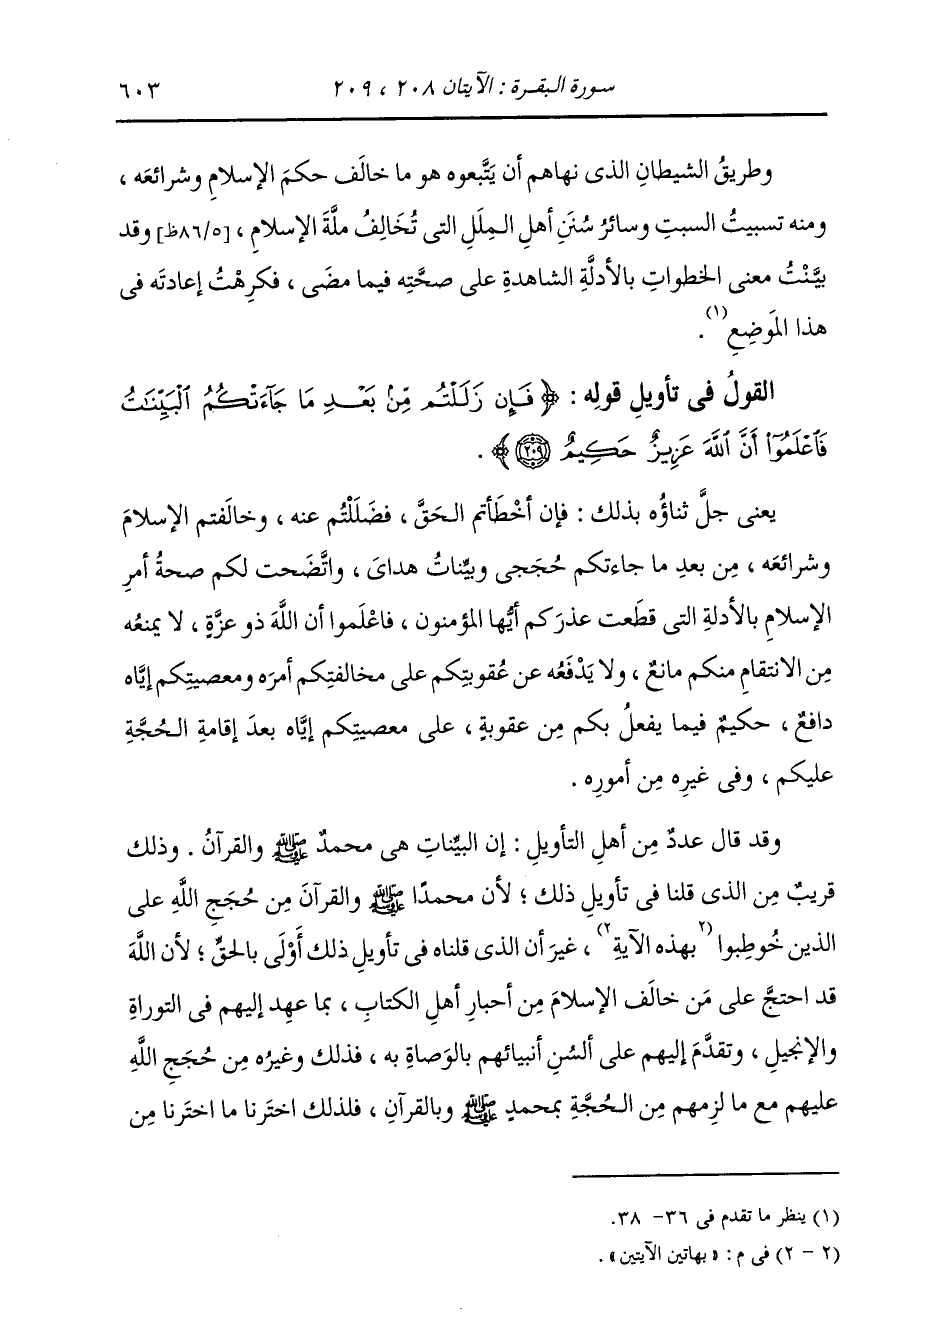 سورة البقرة : الآيتان ٢٠٨ ، ٢٠٩ ٦٠٣
وطريقُ الشيطانِ الذى نهاهم أن يَتَّبعوه هو ما خالَف حكمَ الإسلامِ وشرائعَه ،
ومنه تسبيتُ السبتِ وسائرُ سُنَنِ أهلِ المِلَلِ التى تُخَالِفُ ملَّةَ الإسلامِ ، [٨٦/٥ظ] وقد
بيَّنْتُ معنى الخطواتِ بالأدلَّةِ الشاهدةِ على صحَّتِه فيما مضَى ، فكرِهْتُ إعادتَه فى
هذا المَوضِعِ(١) .
القولُ فى تأويلِ قولِه : ﴿ فَإِن زَلَلْتُم مِّنۢ بَعْدِ مَا جَآءَتْكُمُ ٱلْبَيِّنَٰتُ
فَٱعْلَمُوٓا۟ أَنَّ ٱللَّهَ عَزِيزٌ حَكِيمٌ ٢٠٩ ﴾ .
يعنى جلَّ ثناؤُه بذلك : فإن أخْطَأتم الحقَّ ، فضَلَلْتُم عنه ، وخالَفتم الإسلامَ
وشرائعَه ، مِن بعدِ ما جاءتكم حُجَجى وبيِّناتُ هداىَ ، واتَّضَحت لكم صحةُ أمرِ
الإسلامِ بالأدلةِ التى قطَعت عذرَكم أيُّها المؤمنون ، فاعْلَموا أن اللَّهَ ذو عزَّةٍ ، لا يمنعُه
مِن الانتقامِ منكم مانعٌ ، ولا يَدْفَعُه عن عُقوبتِكم على مخالفتِكم أمرَه ومعصيتِكم إيَّاه
دافعٌ ، حكيمٌ فيما يفعلُ بكم مِن عقوبةٍ ، على معصيتِكم إيَّاه بعدَ إقامةِ الحُجَّةِ
عليكم ، وفى غيرِه مِن أمورِه .
وقد قال عددٌ مِن أهلِ التأويلِ : إن البيِّناتِ هى محمدٌ ﷺ والقرآنُ . وذلك
قريبٌ مِن الذى قلنا فى تأويلِ ذلك ؛ لأن محمدًا ﷺ والقرآنَ مِن حُجَجِ اللَّهِ على
الذين خُوطِبوا (٢بهذه الآيةِ٢) ، غيرَ أن الذى قلناه فى تأويلِ ذلك أَوْلَى بالحقِّ ؛ لأن اللَّهَ
قد احتجَّ على مَن خالَف الإسلامَ مِن أحبارِ أهلِ الكتابِ ، بما عهِد إليهم فى التوراةِ
والإنجيلِ ، وتقدَّمَ إليهم على ألسُنِ أنبيائهم بالوَصاةِ به ، فذلك وغيرُه مِن حُجَجِ اللَّهِ
عليهم مع ما لزِمهم مِن الحُجَّةِ بمحمدٍ ﷺ وبالقرآنِ ، فلذلك اختَرنا ما اختَرنا مِن
(١) ينظر ما تقدم فى ٣٦- ٣٨.
(٢ - ٢) فى م : « بهاتين الآيتين» .